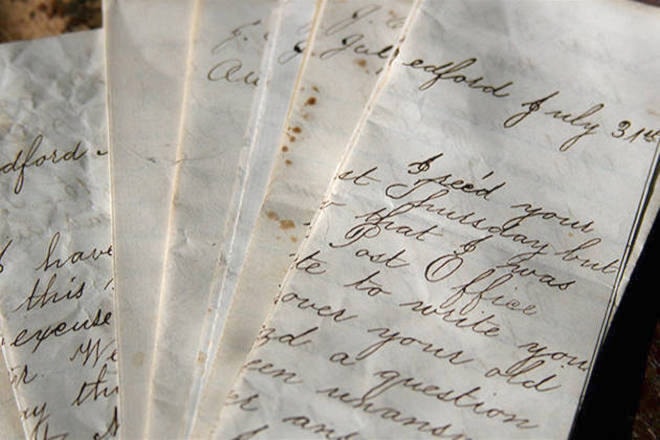 dford
I have
this
excuse
r. We
y thi
J.
Au
J.
Jul
edford July 31st
I rec'd your
st Thursday but
that I was
Post Office
te to write you
over your old
d a question
een unans
er an